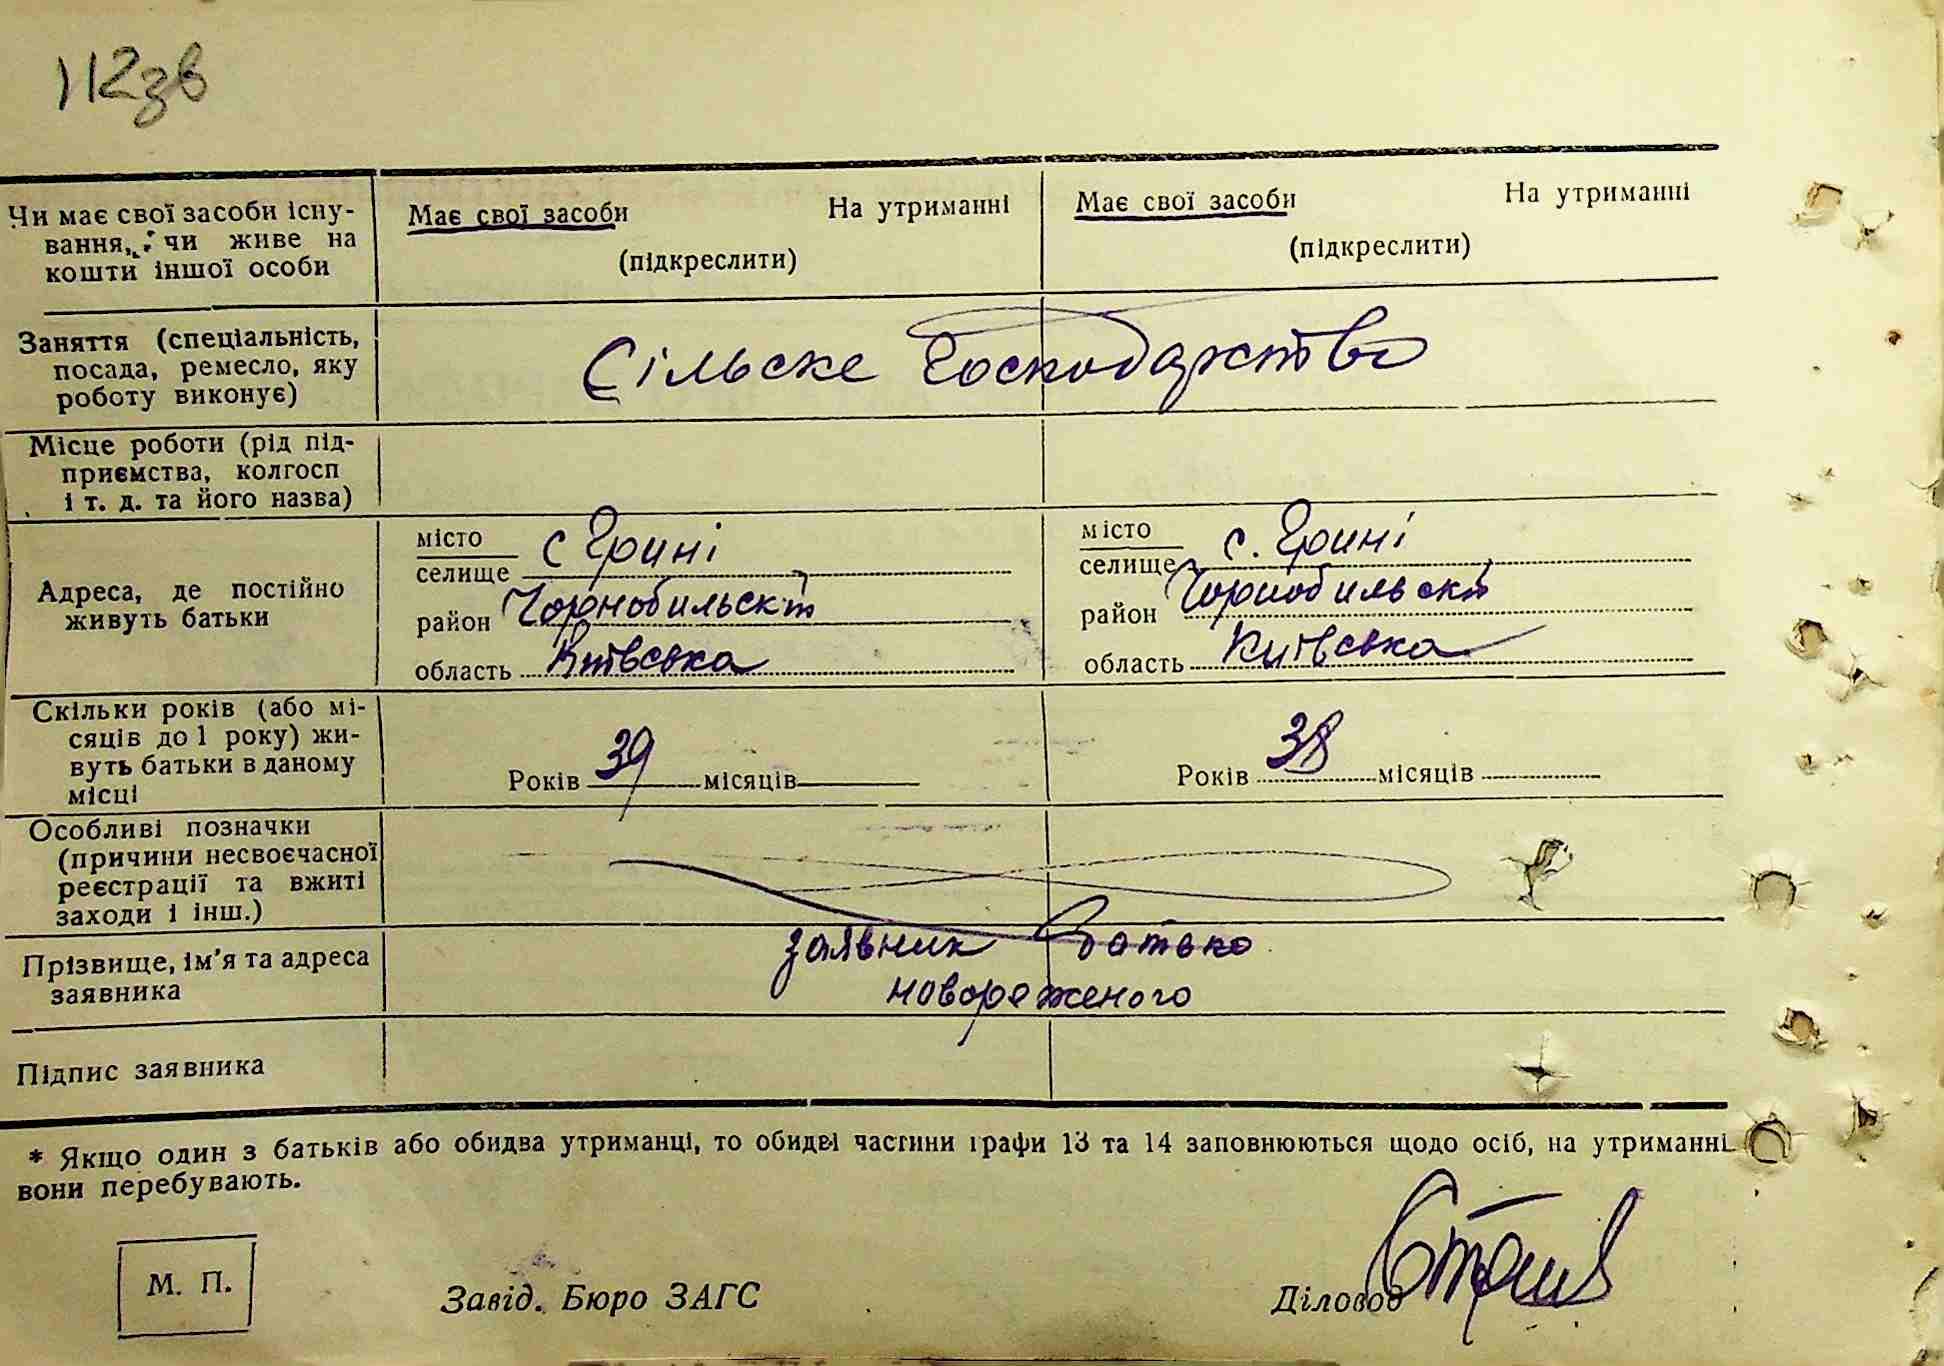 112зв
Чи має свої засоби існу-
вання, чи живе на
кошти іншої особи
Має свої засоби На утриманні
(підкреслити)
Має свої засоби На утриманні
(підкреслити)
Заняття (спеціальність,
посада, ремесло, яку
роботу виконує)
Сільске господарство
Місце роботи (рід під-
приємства, колгосп
і т. д. та його назва)
Адреса, де постійно
живуть батьки
місто
селище с Грині
район Чорнобильскт
область Київська
місто
селище с. Грині
район Чорнобильскт
область Київська
Скільки років (або мі-
сяців до 1 року) жи-
вуть батьки в даному
місці
Років 39 місяців
Років 38 місяців
Особливі позначки
(причини несвоєчасної
реєстрації та вжиті
заходи і інш.)
Прізвище, ім'я та адреса
заявника
заявник батько
новороженого
Підпис заявника
* Якщо один з батьків або обидва утриманці, то обидві частини графи 13 та 14 заповнюються щодо осіб, на утриманні
вони перебувають.
М. П.
Завід. Бюро ЗАГС
Діловод